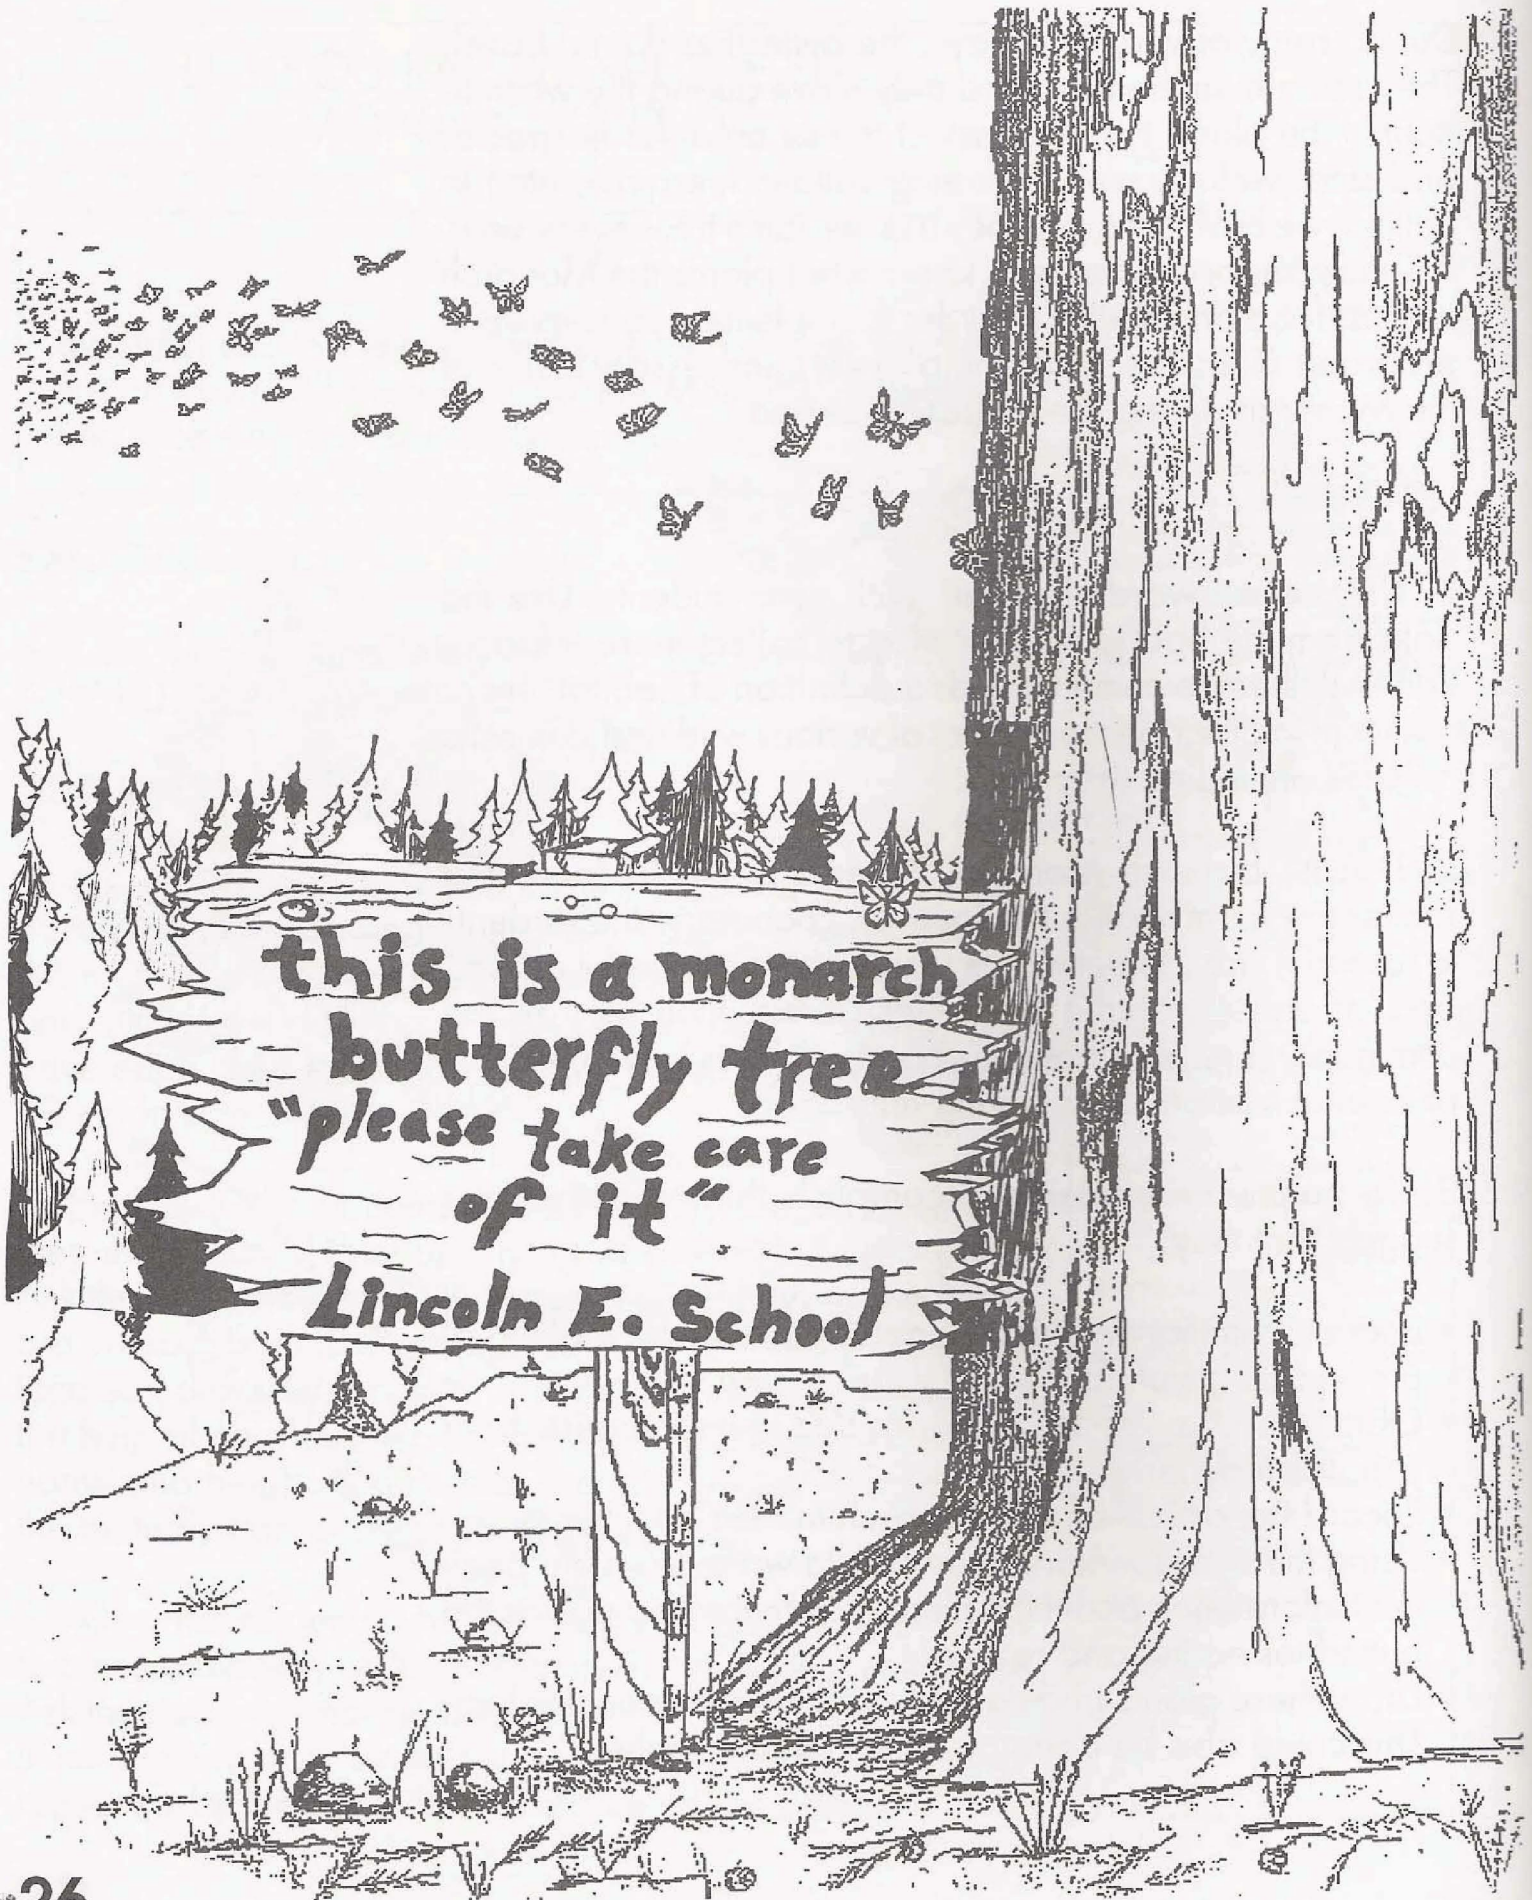 this is a monarch
butterfly tree
"please take care
of it"
Lincoln E. School
26